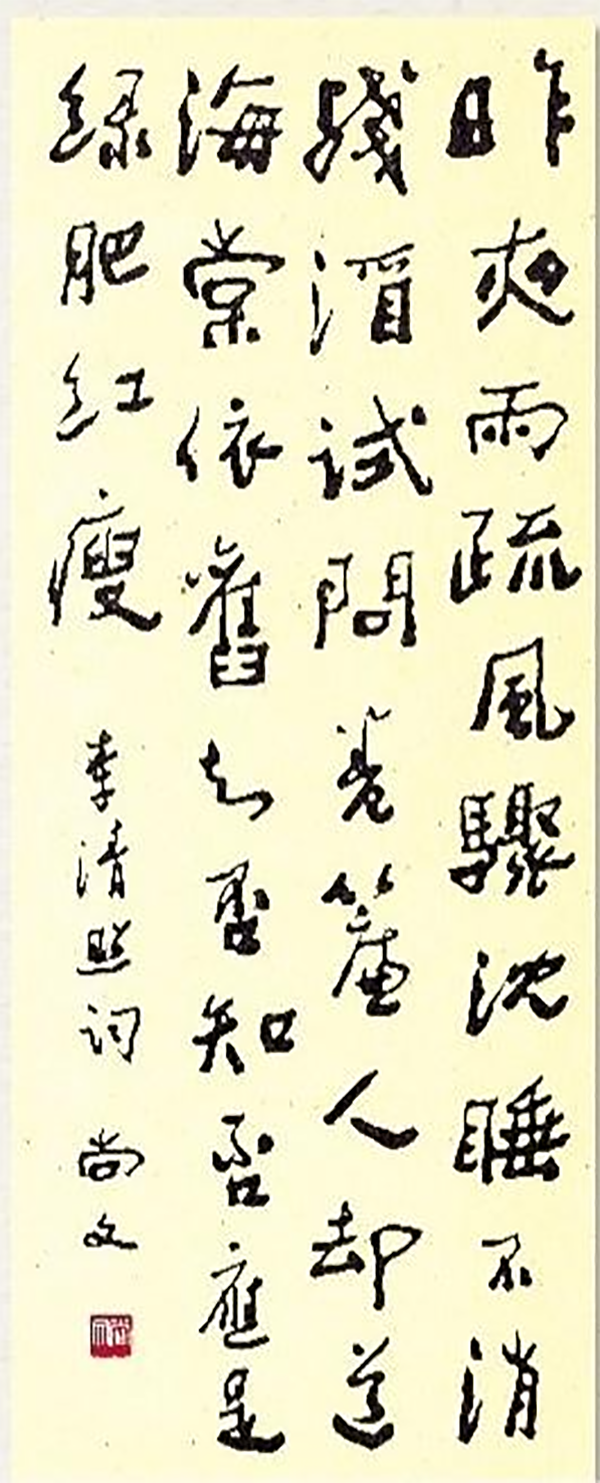 昨夜雨疏風驟沈睡不消
殘酒試問卷簾人却道
海棠依舊知否知否應是
綠肥紅瘦 李清照詞 尚文